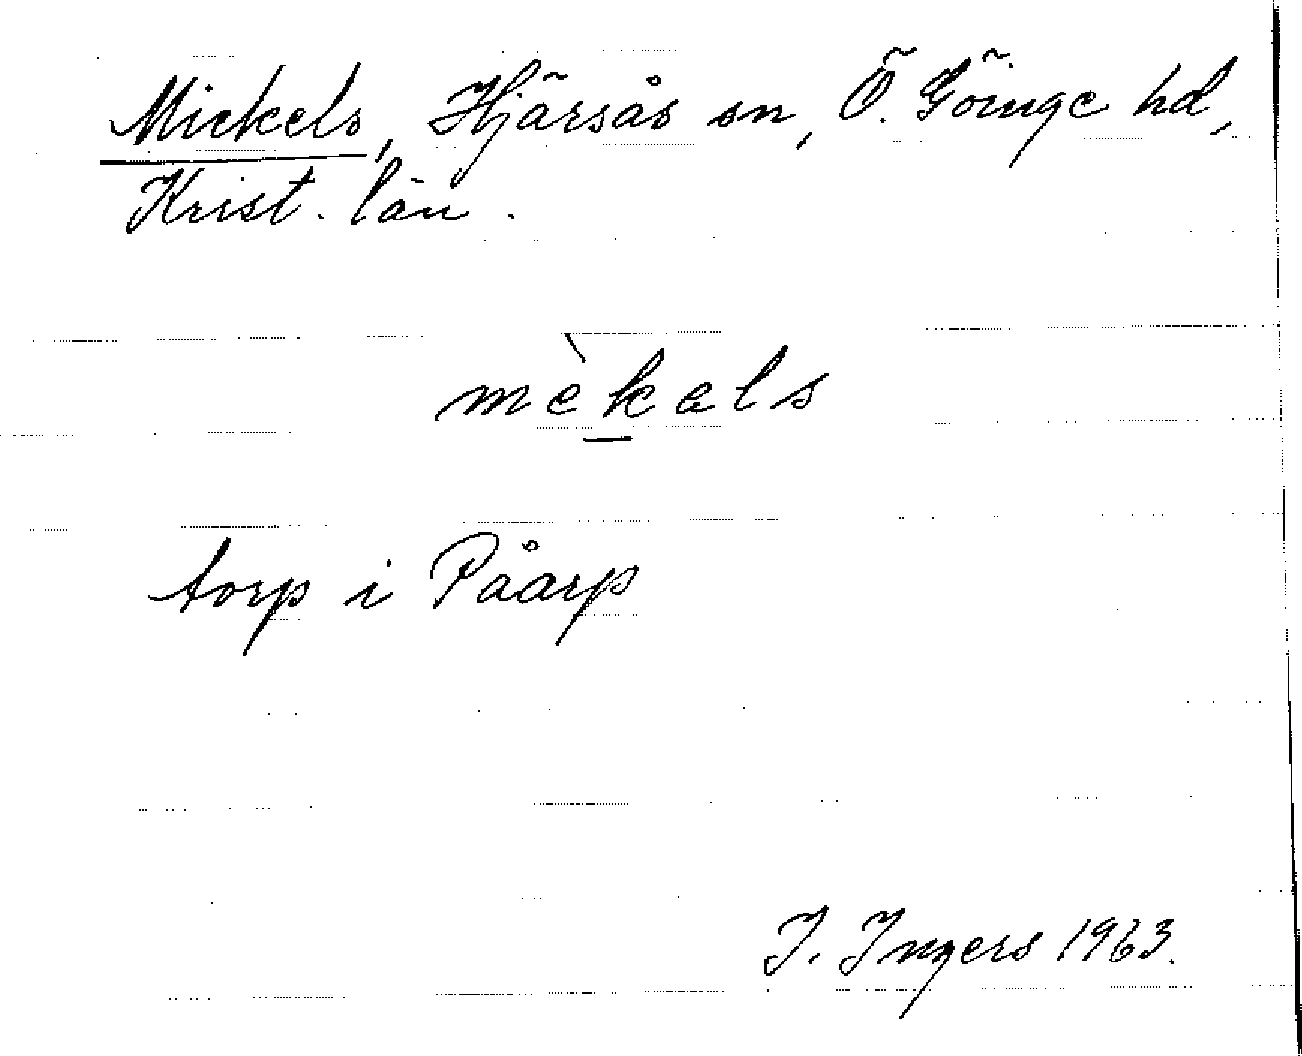 Mickels, Hjärsås sn, Ö. Göinge hd,
Krist. län.
mèkəls
torp i Påarp
I. Ingers 1963.